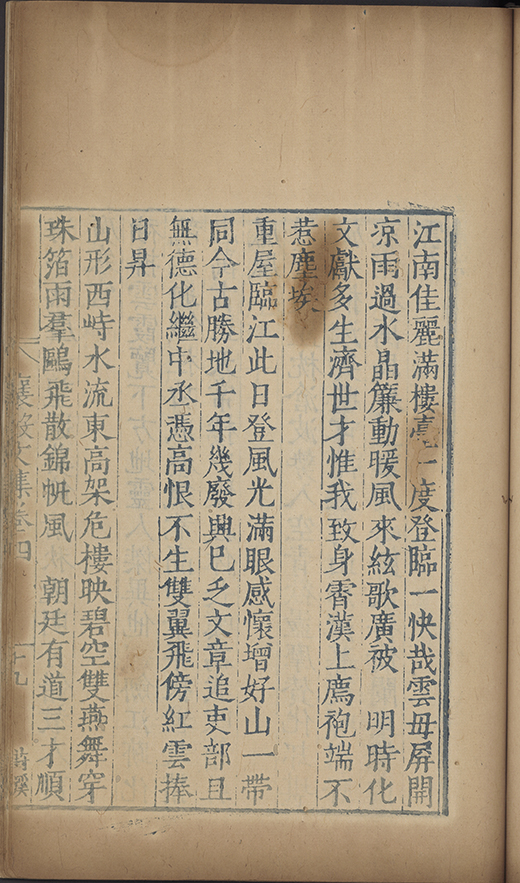 江南佳麗滿樓臺一度登臨一快哉雲母屏開
凉雨過水晶簾動暖風來絃歌廣被 明時化
文獻多生濟世才惟我致身霄漢上廌袍端不
惹塵埃
重屋臨江此日登風光滿眼感懷增好山一帶
同今古勝地千年幾廢興已乏文章追吏部且
無德化繼中丞憑高恨不生雙翼飛傍紅雲捧
日昇
山形西峙水流東高架危樓映碧空雙燕舞穿
珠箔雨羣鷗飛散錦帆風 朝廷有道三才順
襄毅文集卷四
十九